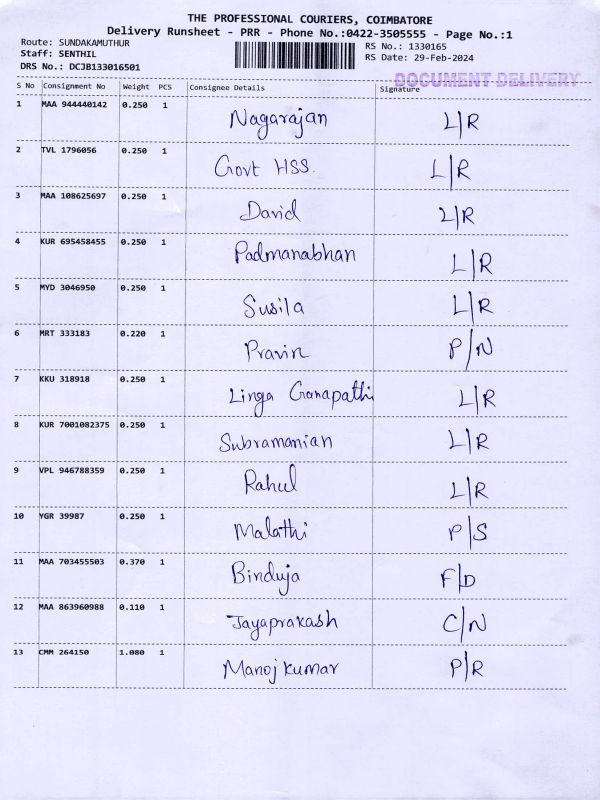 THE PROFESSIONAL COURIERS, COIMBATORE
Delivery Runsheet - PRR - Phone No.:0422-3505555 - Page No.:1
Route: SUNDAKAMUTHUR RS No.: 1330165
Staff: SENTHIL RS Date: 29-Feb-2024
DRS No.: DCJB133016501
DOCUMENT DELIVERY
S No Consignment No Weight PCS Consignee Details Signature
1 MAA 944440142 0.250 1 Nagarajan L/R
2 TVL 1796056 0.250 1 Govt HSS. L/R
3 MAA 108625697 0.250 1 David L/R
4 KUR 695458455 0.250 1 Padmanabhan L/R
5 MYD 3046950 0.250 1 Susila L/R
6 MRT 333183 0.220 1 Pravin P/N
7 KKU 318918 0.250 1 Linga Ganapathi L/R
8 KUR 7001082375 0.250 1 Subramanian L/R
9 VPL 946788359 0.250 1 Rahul L/R
10 YGR 39987 0.250 1 Malathi P/S
11 MAA 703455503 0.370 1 Binduja F/D
12 MAA 863960988 0.110 1 Jayaprakash C/N
13 CMM 264150 1.080 1 Manoj kumar P/R